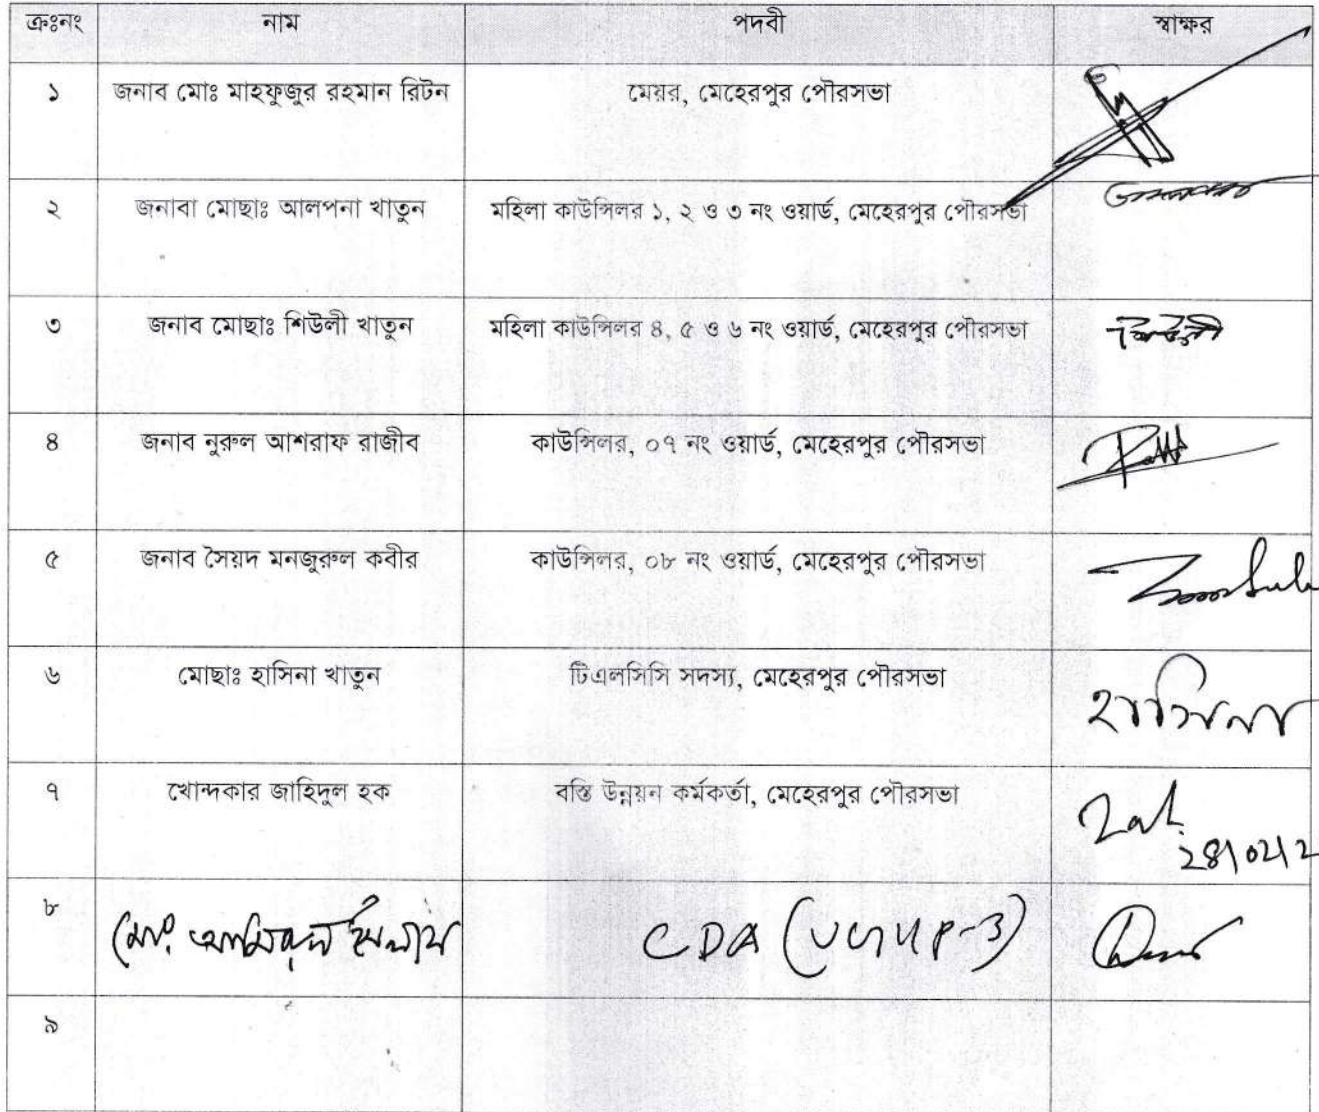 ক্রঃনং নাম পদবী স্বাক্ষর
১ জনাব মোঃ মাহফুজুর রহমান রিটন মেয়র, মেহেরপুর পৌরসভা
২ জনাবা মোছাঃ আলপনা খাতুন মহিলা কাউন্সিলর ১, ২ ও ৩ নং ওয়ার্ড, মেহেরপুর পৌরসভা
৩ জনাব মোছাঃ শিউলী খাতুন মহিলা কাউন্সিলর ৪, ৫ ও ৬ নং ওয়ার্ড, মেহেরপুর পৌরসভা শিউলী
৪ জনাব নুরুল আশরাফ রাজীব কাউন্সিলর, ০৭ নং ওয়ার্ড, মেহেরপুর পৌরসভা
৫ জনাব সৈয়দ মনজুরুল কবীর কাউন্সিলর, ০৮ নং ওয়ার্ড, মেহেরপুর পৌরসভা
৬ মোছাঃ হাসিনা খাতুন টিএলসিসি সদস্য, মেহেরপুর পৌরসভা হাসিনা
৭ খোন্দকার জাহিদুল হক বস্তি উন্নয়ন কর্মকর্তা, মেহেরপুর পৌরসভা
৮ মোঃ আমিরুল ইসলাম CDA (UGIIP-3)
৯